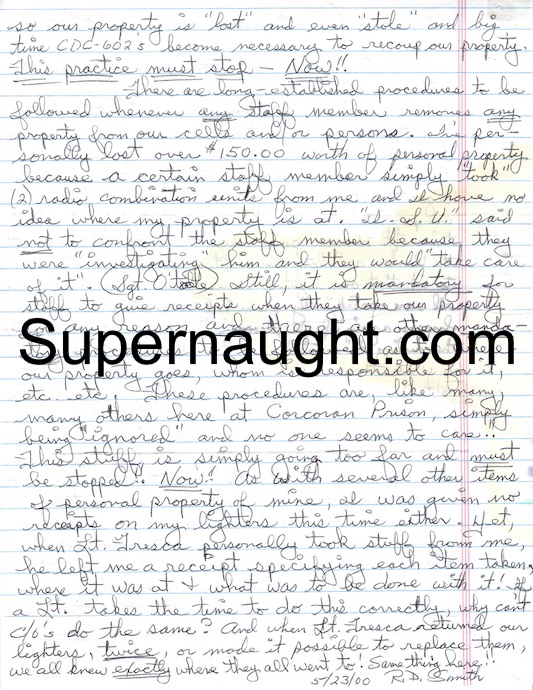 so our property is "lost" and even "stole" and big
time CDC-602's become necessary to recoup our property.
This practice must stop – Now!!
There are long-established procedures to be
followed whenever any staff member removes any
property from our cells and/or persons. I've per-
sonally lost over $150.00 worth of personal property
because a certain staff member simply "took"
(2) radio combination units from me and I have no
idea where my property is at. "I. S. U." said
not to confront the staff member because they
were "investigating" him and they would "take care
of it". (Sgt. Still, it is mandatory for
staff to give receipts when they take our property
for any reason and there are other manda-
Supernaught.com
our property goes, whom is responsible for it,
etc. etc. These procedures are, like many,
many others here at Corcoran Prison, simply
being "ignored" and no one seems to care..
This stuff is simply going too far and must
be stopped!! Now!! As with several other items
of personal property of mine, I was given no
receipts on my lighters this time either. Yet,
when Lt. Fresca personally took stuff from me,
he left me a receipt specifying each item taken,
where it was at & what was to be done with it! If
a Lt. takes the time to do this correctly, why can't
C/O's do the same? And when Lt. Fresca returned our
lighters, twice, or made it possible to replace them,
we all knew exactly where they all went to! Same thing here!!
5/23/00 R.D. Smith